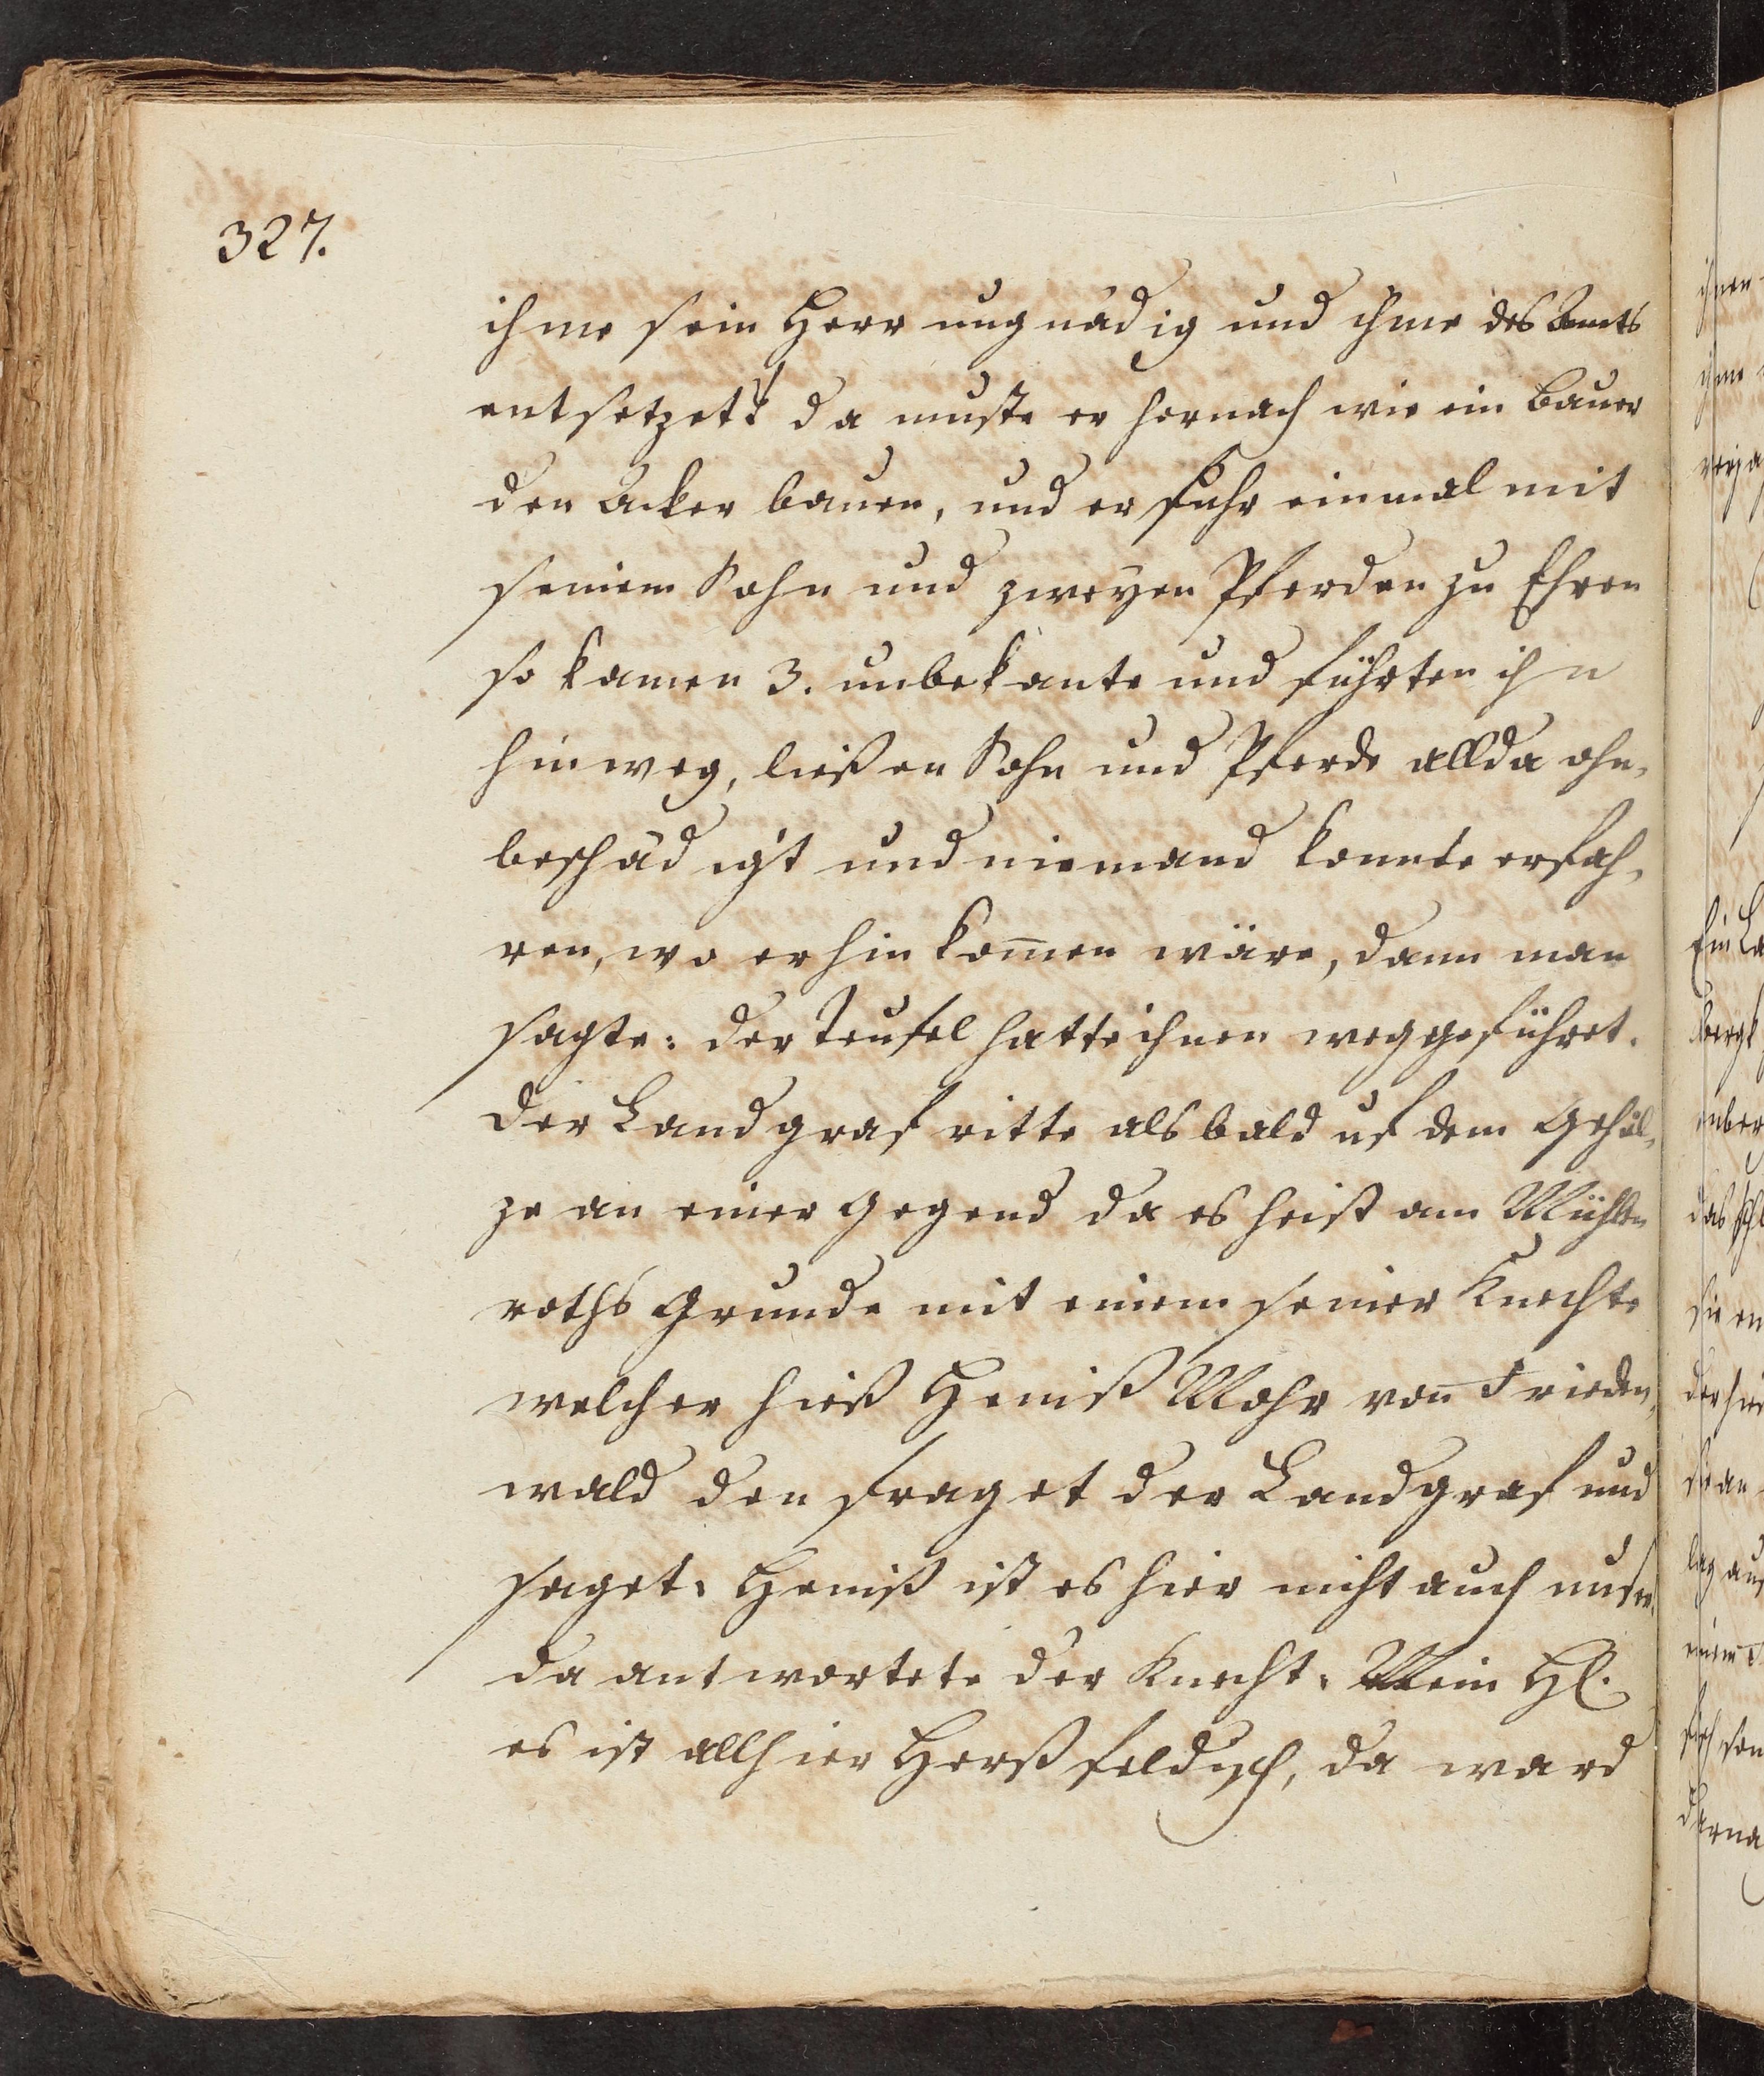 327.
ihme sein Herr ungnädig und ihme des Amts
entsetzet! da muste er hernach wie ein Bauer
den Acker bauen, und er fuhr einmal mit
seinem Sohn und zweyen Pferden zu Ehren
so kamen 3. unbekante und führten ihn
hinweg, ließen Sohn und Pferde allda ohn-
beschädigt und niemand konnte erfah-
ren, wo er hin kom̄en wäre, dann man
sagte: der Teufel hatte ihnen weggeführet.
der Landgraf ritte alsbald uf dem Gehöl-
ze an einer Gegend da es heist am Mühlen
roths Grunde mit einem seiner Knechte
welcher hieß Heniß Mohr von Frieden-
wald den fraget der Landgraf und
saget: Heniß ist es hier nicht auch unser
da antwortete der Knecht: Mein H.
es ist allhier Herßfeldisch, da ward